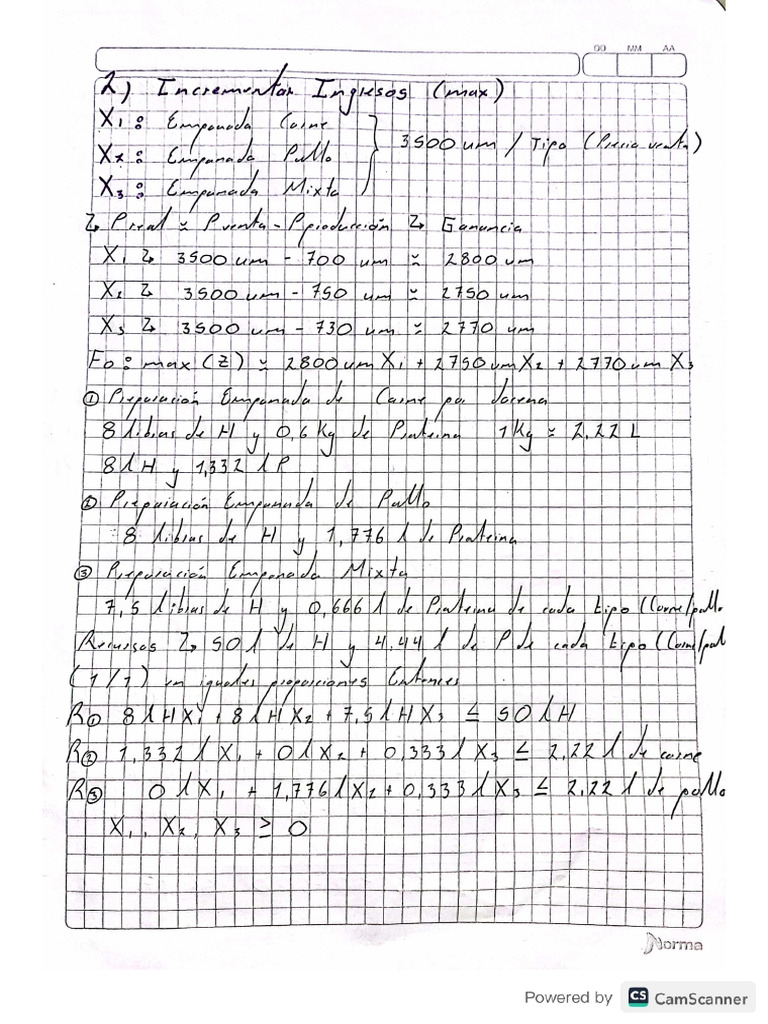 DD MM AA
2) Incrementar Ingresos (max)
X₁ : Empanada Carne
X₂ : Empanada Pollo
X₃ : Empanada Mixta
3500 um / Tipo (Precio venta)
↳ Preal ≈ Pventa - Pproducción ↳ Ganancia
X₁ ↳ 3500 um - 700 um ≈ 2800 um
X₂ ↳ 3500 um - 750 um ≈ 2750 um
X₃ ↳ 3500 um - 730 um ≈ 2770 um
Fo : max (Z) ≈ 2800um X₁ + 2750um X₂ + 2770um X₃
① Preparación Empanada de Carne por docena
8 libras de H y 0,6 Kg de Proteina 1 Kg ≈ 2,22 L
8 l H y 1,332 l P
② Preparación Empanada de Pollo
8 libras de H y 1,776 l de Proteina
③ Preparación Empanada Mixta
7,5 libras de H y 0,666 l de Proteina de cada tipo (Carne/pollo
Recursos ↳ 50 l de H y 4,44 l de P de cada tipo (Carne/pol
(1/1) en iguales proporciones Entonces
R① 8 l H X₁ + 8 l H X₂ + 7,5 l H X₃ ≤ 50 l H
R② 1,332 l X₁ + 0 l X₂ + 0,333 l X₃ ≤ 2,22 l de carne
R③ 0 l X₁ + 1,776 l X₂ + 0,333 l X₃ ≤ 2,22 l de pollo
X₁, X₂, X₃ ≥ 0
Norma
Powered by CS CamScanner